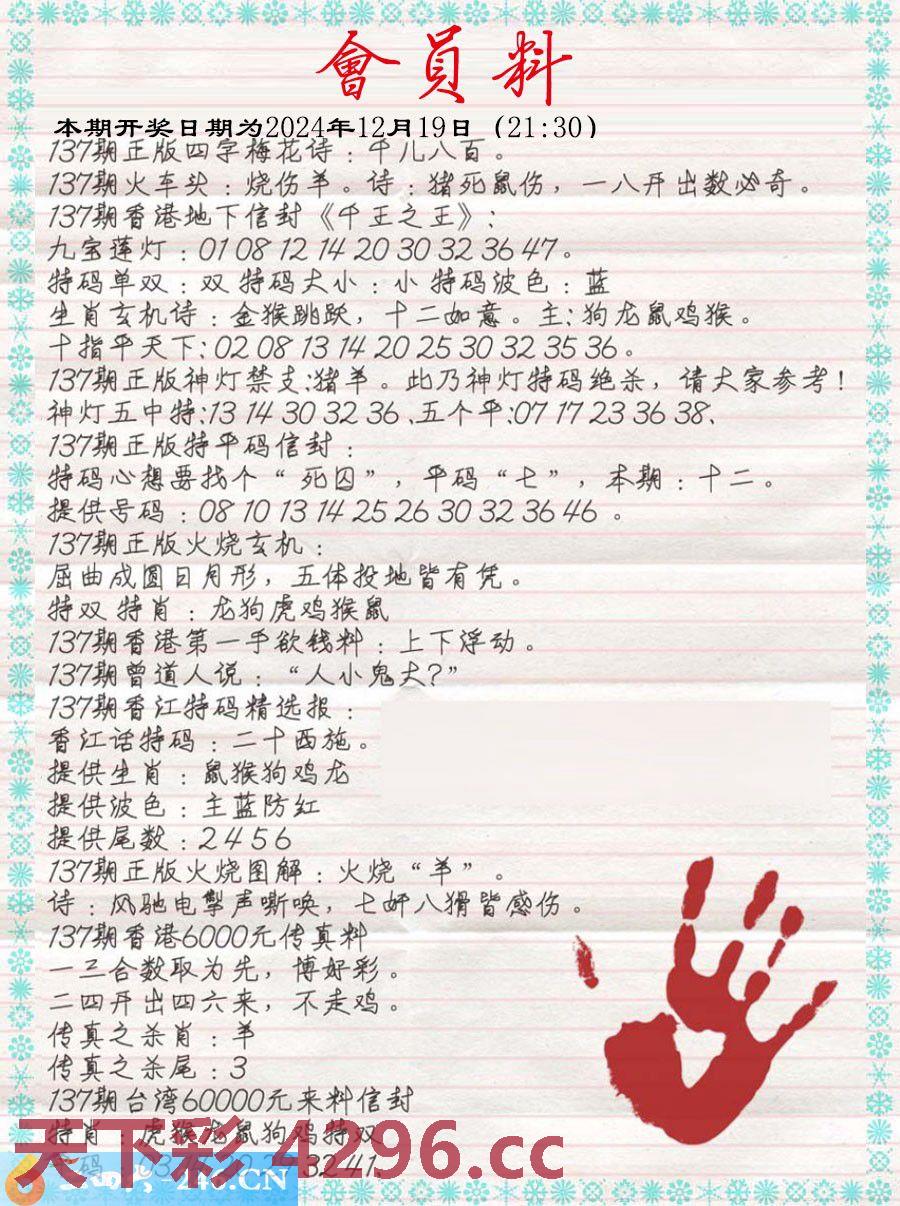 會員料
本期开奖日期为2024年12月19日（21:30）
137期正版四字梅花诗：千儿八百。
137期火车头：烧伤羊。诗：猪死鼠伤，一八开出数必奇。
137期香港地下信封《千王之王》：
九宝莲灯：01 08 12 14 20 30 32 36 47。
特码单双：双 特码大小：小 特码波色：蓝
生肖玄机诗：金猴跳跃，十二如意。主：狗龙鼠鸡猴。
十指平天下：02 08 13 14 20 25 30 32 35 36。
137期正版神灯禁支：猪羊。此乃神灯特码绝杀，请大家参考！
神灯五中特：13 14 30 32 36、五个平：07 17 23 36 38、
137期正版特平码信封：
特码心想要找个“死囚”，平码“七”，本期：十二。
提供号码：08 10 13 14 25 26 30 32 36 46 。
137期正版火烧玄机：
屈曲成圆日月形，五体投地皆有凭。
特双 特肖：龙狗虎鸡猴鼠
137期香港第一手欲钱料：上下浮动。
137期曾道人说：“人小鬼大？”
137期香江特码精选报：
香江话特码：二十西施。
提供生肖：鼠猴狗鸡龙
提供波色：主蓝防红
提供尾数：2 4 5 6
137期正版火烧图解：火烧“羊”。
诗：风驰电掣声嘶唤，七奸八猾皆感伤。
137期香港6000元传真料
一三合数取为先，博好彩。
二四开出四六来，不走鸡。
传真之杀肖：羊
传真之杀尾：3
137期台湾60000元来料信封
特肖：虎猴龙鼠狗鸡特双
32 41、
天下彩,4296.cc
246.CN